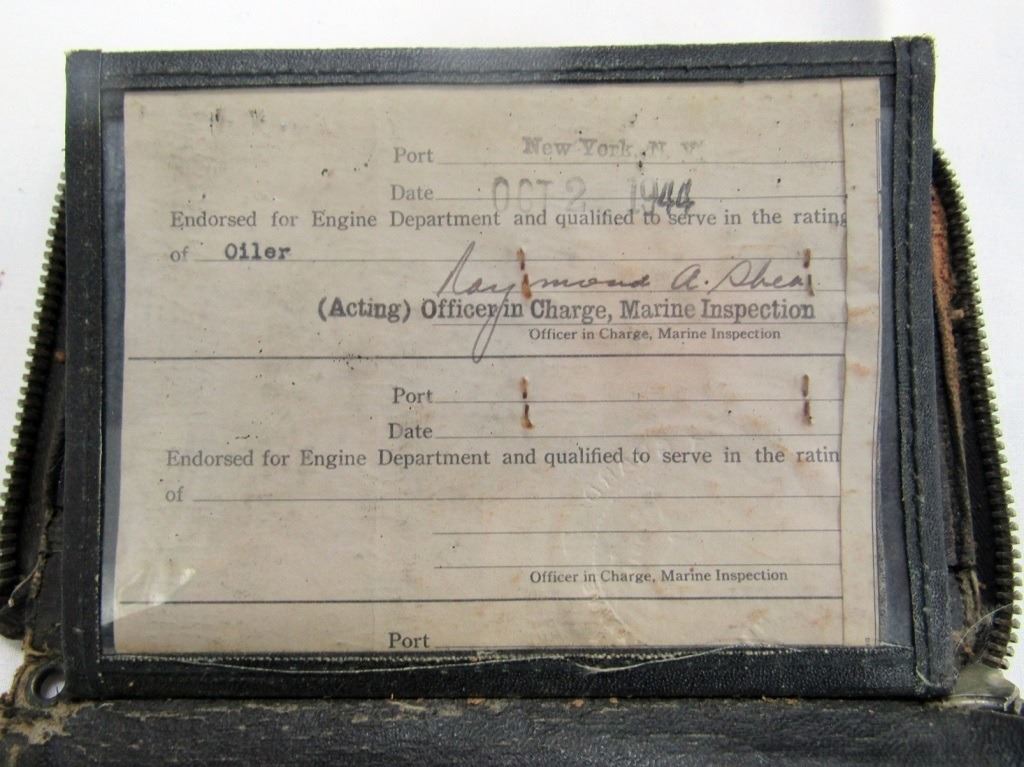 Port New York, N. Y.
Date OCT 2 1944
Endorsed for Engine Department and qualified to serve in the rating
of Oiler
Raymond A. Shea
(Acting) Officer in Charge, Marine Inspection
Officer in Charge, Marine Inspection
Port
Date
Endorsed for Engine Department and qualified to serve in the ratin
of
Officer in Charge, Marine Inspection
Port